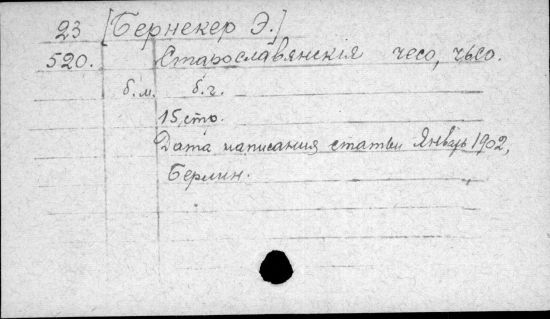 23 [Бернекер Э.]
520. Старославянскія чесо, чьсо.
б.м. б.г.
15 стр.
Дата написания статьи Январь 1902,
Берлин.